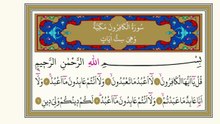 سُورَةُ الْكَافِرُونَ مَكِّيَّةٌ
وَهِيَ سِتُّ آيَاتٍ
بِسْمِ اللّٰهِ الرَّحْمٰنِ الرَّحِيمِ
قُلْ يَا أَيُّهَا الْكَافِرُونَ ۝ لَا أَعْبُدُ مَا تَعْبُدُونَ ۝ وَلَا أَنْتُمْ عَابِدُونَ مَا أَعْبُدُ ۝ وَلَا
أَنَا عَابِدٌ مَا عَبَدْتُمْ ۝ وَلَا أَنْتُمْ عَابِدُونَ مَا أَعْبُدُ ۝ لَكُمْ دِينُكُمْ وَلِيَ دِينِ ۝